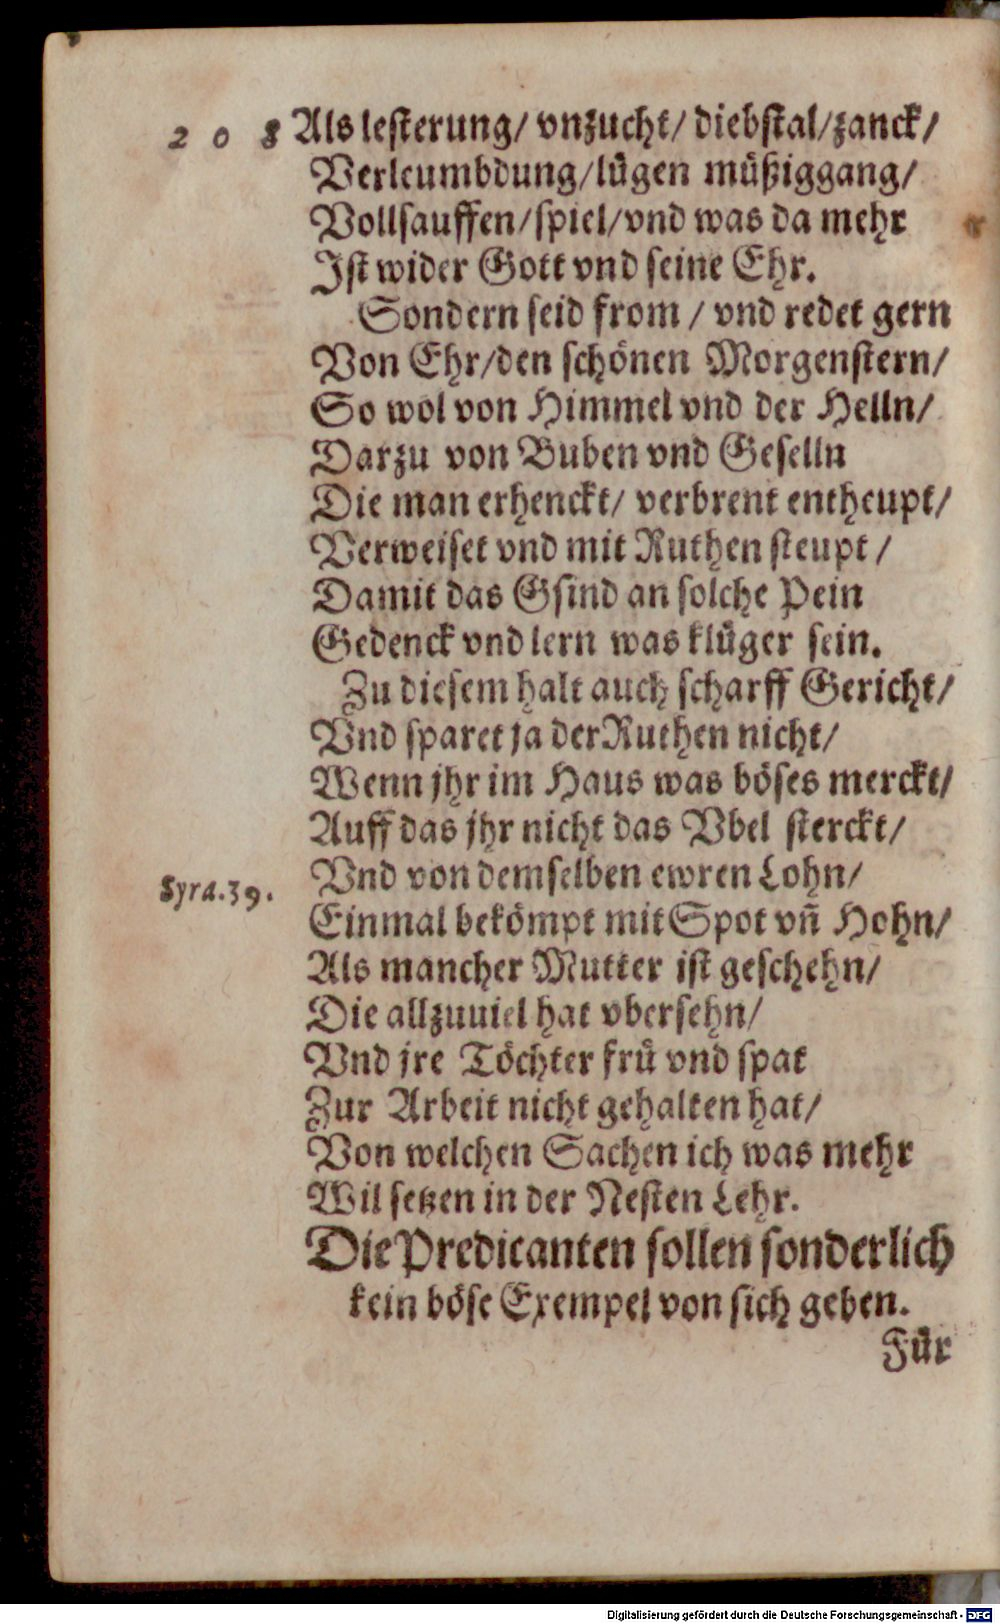 2 0 8 Als lesterung/ vnzucht/ diebstal/zanck/
Verleumbdung/lügen müßiggang/
Vollsauffen/spiel/vnd was da mehr
Ist wider Gott vnd seine Ehr.
Sondern seid from / vnd redet gern
Von Ehr/den schönen Morgenstern/
So wol von Himmel vnd der Helln/
Darzu von Buben vnd Geselln
Die man erhenckt/ verbrent entheupt/
Verweiset vnd mit Ruthen steupt /
Damit das Gsind an solche Pein
Gedenck vnd lern was klüger sein.
Zu diesem halt auch scharff Gericht/
Vnd sparet ja der Ruthen nicht/
Wenn jhr im Haus was böses merckt/
Auff das jhr nicht das Vbel sterckt/
Vnd von demselben ewren Lohn/
Syra.39.
Einmal bekömpt mit Spot vñ Hohn/
Als mancher Mutter ist geschehn/
Die allzuuiel hat vbersehn/
Vnd jre Töchter frü vnd spat
Zur Arbeit nicht gehalten hat/
Von welchen Sachen ich was mehr
Wil setzen in der Nesten Lehr.
Die Predicanten sollen sonderlich
kein böse Exempel von sich geben.
Für
Digitalisierung gefördert durch die Deutsche Forschungsgemeinschaft - DFG